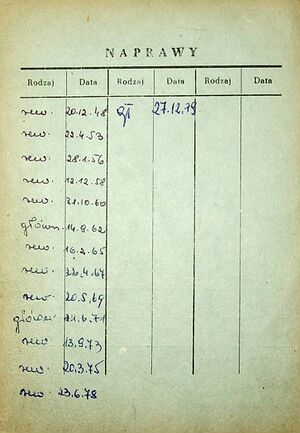 NAPRAWY
Rodzaj Data Rodzaj Data Rodzaj Data
rew. 20.12.48 gł 27.12.79
rew. 22.4.53
rew. 28.1.56
rew. 12.12.58
rew. 21.10.60
główn. 14.9.62
rew. 16.2.65
rew. 4.67
rew. 20.5.69
główn. 21.6.71
rew. 13.9.73
rew. 20.3.75
rew. 23.6.78